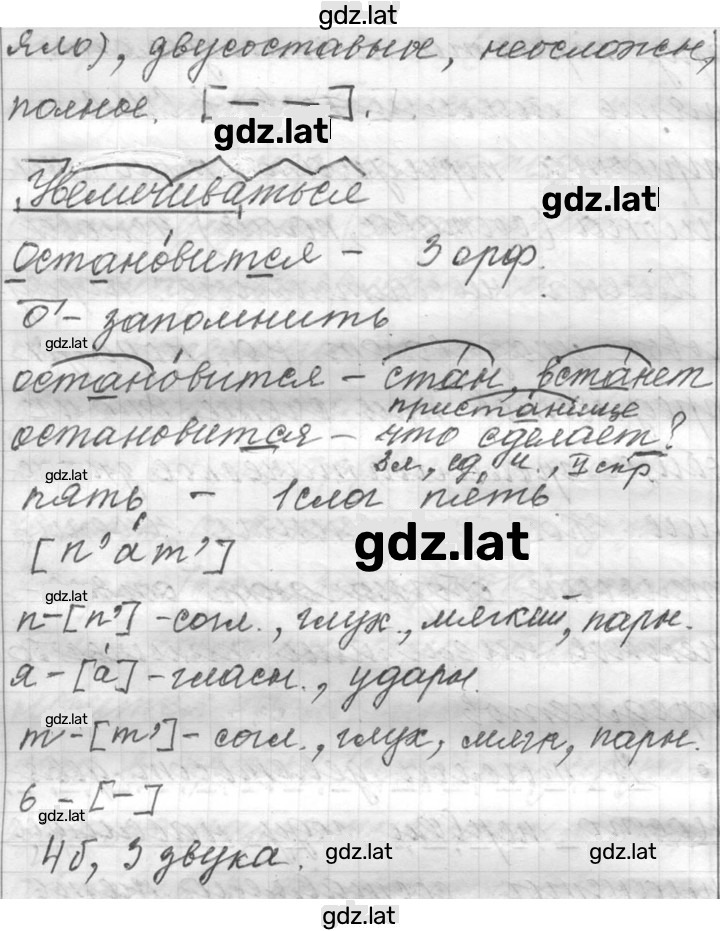 gdz.lat
яло), двусоставные, неосложн,
полное. [— —].
gdz.lat
Увеличиваться
gdz.lat
Остано́вится – 3 орф.
о – запомнить
gdz.lat
остано́вится – стан, вста́нет
приста́нище
остановится – что сделает?
gdz.lat
3 л., ед. ч., II спр.
пять – 1 слог
[п'а́т']
gdz.lat
gdz.lat
п – [п'] – согл., глух., мягкий, парн.
я – [а́] – гласн., ударн.
gdz.lat
т – [т'] – согл., глух, мягк, парн.
ь – [–]
gdz.lat
4 б, 3 звука.
gdz.lat
gdz.lat
gdz.lat